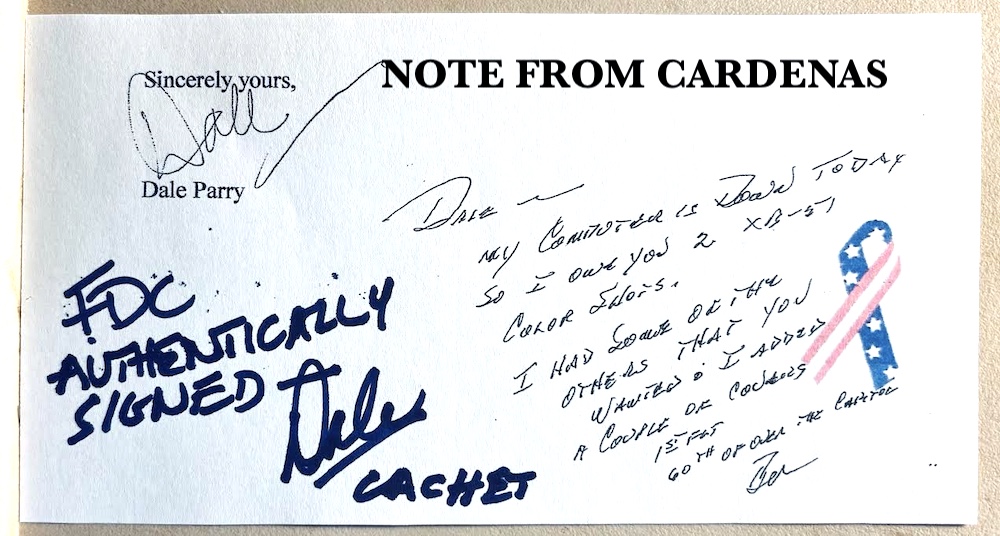 Sincerely yours,
Dale Parry
NOTE FROM CARDENAS
DALE
MY COMPUTER IS DOWN TODAY
SO I OWE YOU 2 XB-51
COLOR SHOTS.
I HAD SOME OF THE
OTHERS THAT YOU
WANTED & I ADDED
A COUPLE OF COVERS
1ST FLT
60TH OF OVER THE CAPITOL
FDC
AUTHENTICALLY
SIGNED
Dale
CACHET